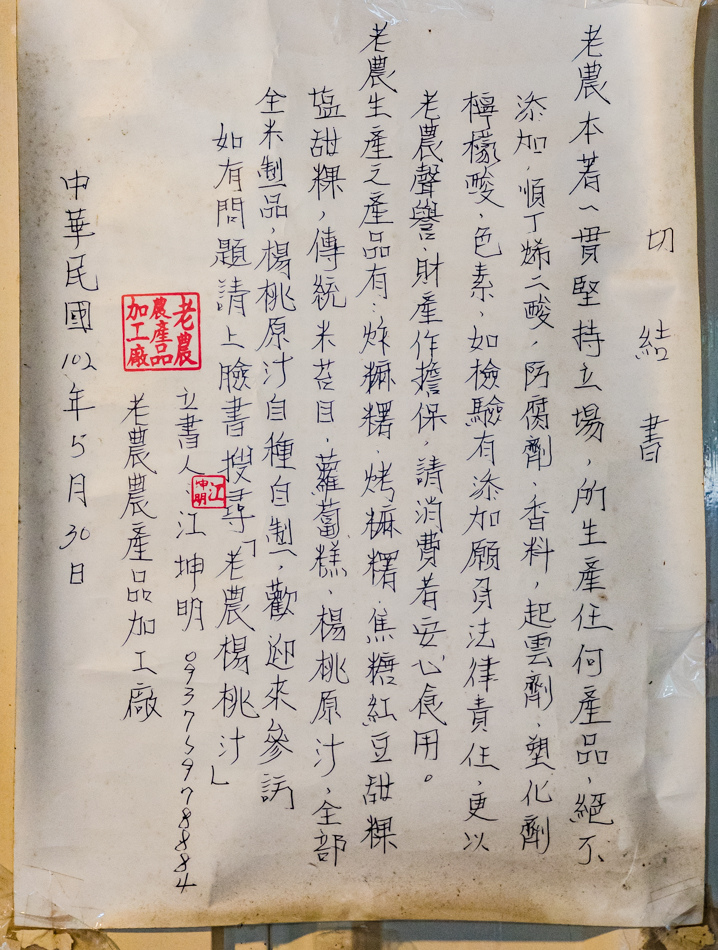 切結書
老農本著一貫堅持立場，所生產任何產品，絕不
添加，順丁烯二酸，防腐劑、香料，起雲劑、塑化劑
檸檬酸、色素，如檢驗有添加願負法律責任，更以
老農聲譽、財產作擔保，請消費者安心食用。
老農生產之產品有：炸糍糬、烤糍糬、焦糖紅豆甜粿
塩甜粿，傳統米苔目、蘿蔔糕、楊桃原汁，全部
全米製品，楊桃原汁自種自製，歡迎來參訪
如有問題請上臉書搜尋「老農楊桃汁」
立書人江坤明
江坤明
老農農產品加工廠
老農農產品加工廠
中華民國102年5月30日